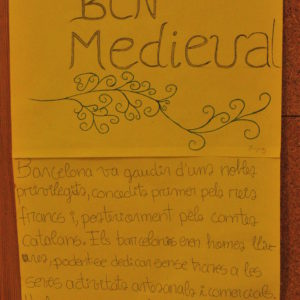 BCN
Medieval
Barcelona va gaudir d'uns nobles
privilegis, concedits primer pels reis
francs i, posteriorment pels comtes
catalans. Els barcelonins eren homes lliu
ures, podent-se dedicar sense traves a les
seves activitats artesanals i comercials.